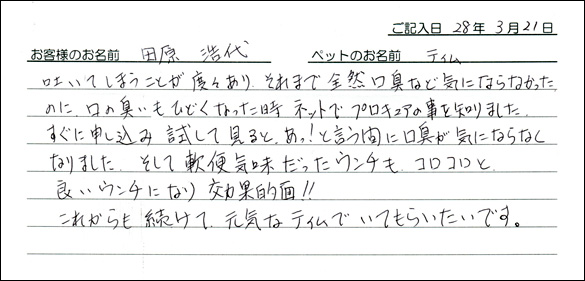 ご記入日 28年 3月21日
お客様のお名前 田原 浩代 ペットのお名前 ティム
吐いてしまうことが度々あり、それまで全然口臭など気にならなかった
のに、口の臭いもひどくなった時 ネットでプロキュアの事を知りました。
すぐに申し込み 試して見ると、あっ!と言う間に口臭が気にならなく
なりました。そして軟便気味だったウンチも、コロコロと、
良いウンチになり 交効果的面!!
これからも続けて、元気なティムでいてもらいたいです。